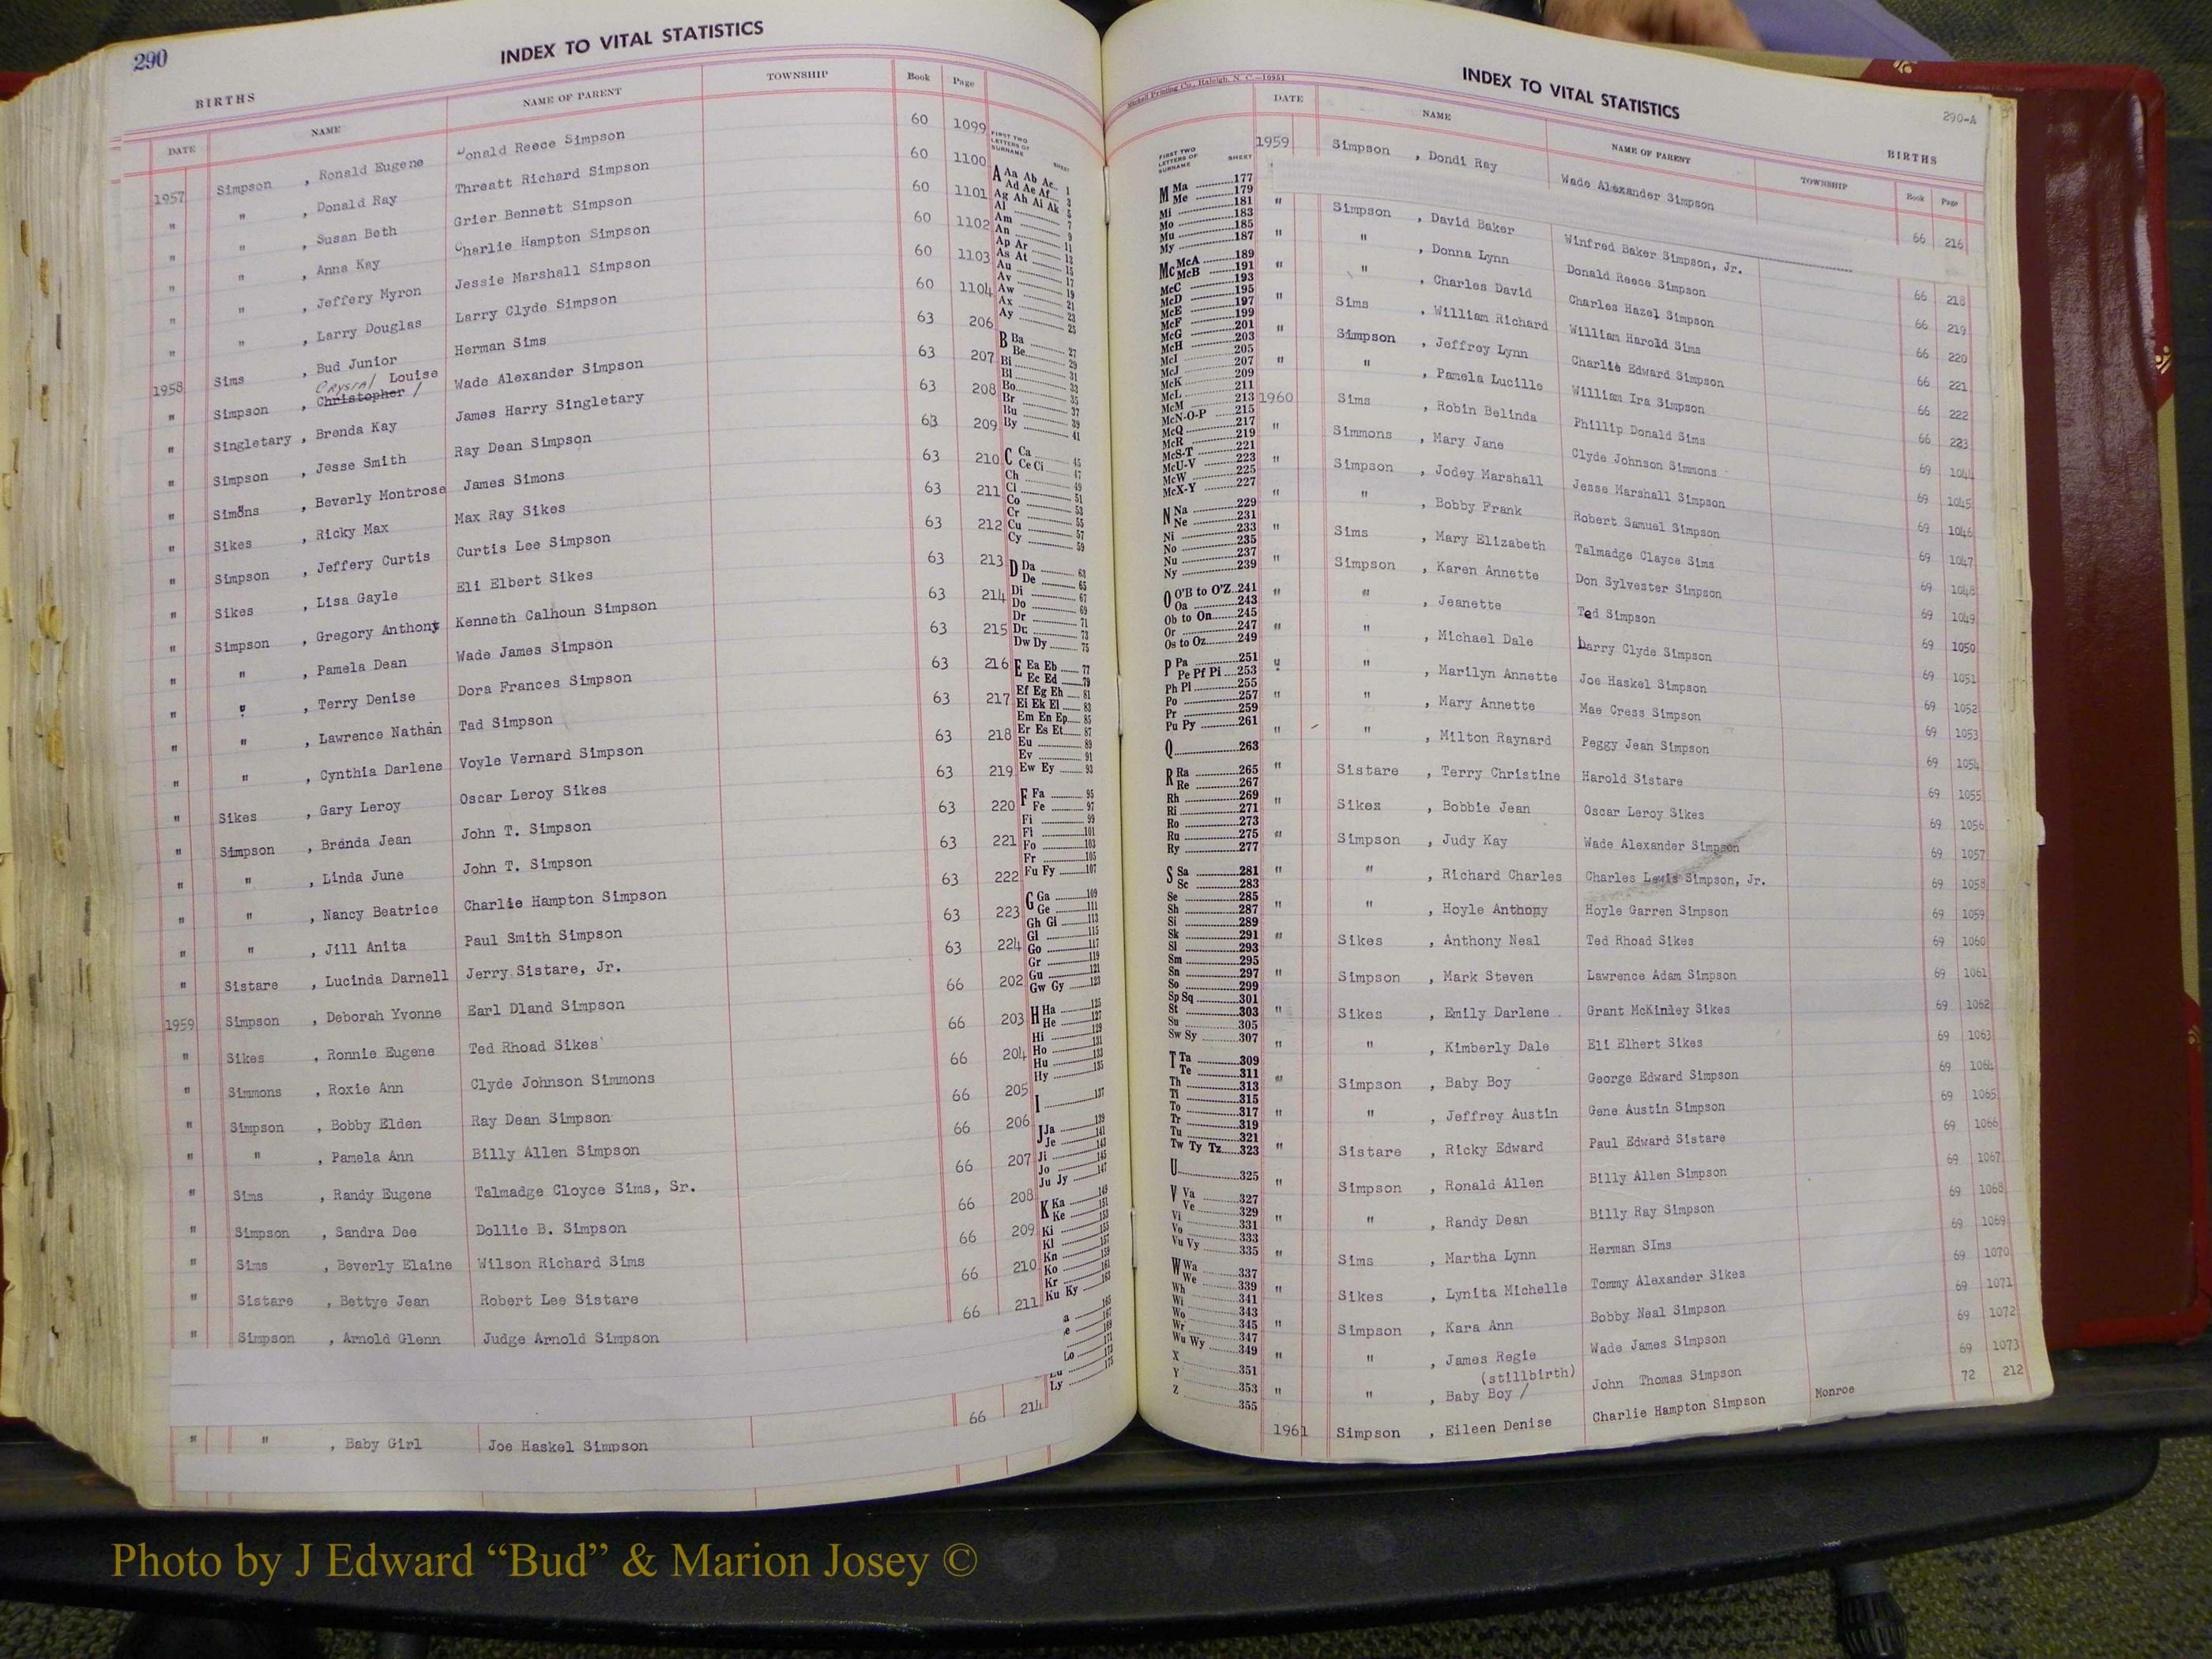 290
INDEX TO VITAL STATISTICS
BIRTHS
DATE NAME NAME OF PARENT TOWNSHIP Book Page
1957 Simpson , Ronald Eugene Donald Reece Simpson 60 1099
" " , Donald Ray Threatt Richard Simpson 60 1100
" " , Susan Beth Grier Bennett Simpson 60 1101
" " , Anna Kay Charlie Hampton Simpson 60 1102
" " , Jeffery Myron Jessie Marshall Simpson 60 1103
" " , Larry Douglas Larry Clyde Simpson 60 1104
1958 Sims , Bud Junior Herman Sims 63 206
" Simpson , Christopher / Crystal Louise Wade Alexander Simpson 63 207
" Singletary , Brenda Kay James Harry Singletary 63 208
" Simpson , Jesse Smith Ray Dean Simpson 63 209
" Simons , Beverly Montrose James Simons 63 210
" Sikes , Ricky Max Max Ray Sikes 63 211
" Simpson , Jeffery Curtis Curtis Lee Simpson 63 212
" Sikes , Lisa Gayle Eli Elbert Sikes 63 213
" Simpson , Gregory Anthony Kenneth Calhoun Simpson 63 214
" " , Pamela Dean Wade James Simpson 63 215
" " , Terry Denise Dora Frances Simpson 63 216
" " , Lawrence Nathan Tad Simpson 63 217
" " , Cynthia Darlene Voyle Vernard Simpson 63 218
" Sikes , Gary Leroy Oscar Leroy Sikes 63 219
" Simpson , Brenda Jean John T. Simpson 63 220
" " , Linda June John T. Simpson 63 221
" " , Nancy Beatrice Charlie Hampton Simpson 63 222
" " , Jill Anita Paul Smith Simpson 63 223
" Sistare , Lucinda Darnell Jerry Sistare, Jr. 63 224
1959 Simpson , Deborah Yvonne Earl Dland Simpson 66 202
" Sikes , Ronnie Eugene Ted Rhoad Sikes 66 203
" Simmons , Roxie Ann Clyde Johnson Simmons 66 204
" Simpson , Bobby Elden Ray Dean Simpson 66 205
" " , Pamela Ann Billy Allen Simpson 66 206
" Sims , Randy Eugene Talmadge Cloyce Sims, Sr. 66 207
" Simpson , Sandra Dee Dollie B. Simpson 66 208
" Sims , Beverly Elaine Wilson Richard Sims 66 209
" Sistare , Bettye Jean Robert Lee Sistare 66 210
" Simpson , Arnold Glenn Judge Arnold Simpson 66 211
" " , Baby Girl Joe Haskel Simpson 66 214
FIRST TWO LETTERS OF SURNAME SHEET
A Aa Ab Ac 1
Ad Ae Af 3
Ag Ah Ai Ak 5
Al 7
Am 9
An 11
Ap Ar 13
As At 15
Au 17
Av 19
Aw 21
Ax 23
Ay 25
B Ba 27
Be 29
Bi 31
Bl 33
Bo 35
Br 37
Bu 39
By 41
C Ca 45
Ce Ci 47
Ch 49
Cl 51
Co 53
Cr 55
Cu 57
Cy 59
D Da 63
De 65
Di 67
Do 69
Dr 71
Du 73
Dw Dy 75
E Ea Eb 77
Ec Ed 79
Ef Eg Eh 81
Ei Ek El 83
Em En Ep 85
Er Es Et 87
Eu 89
Ev 91
Ew Ey 93
F Fa 95
Fe 97
Fi 99
Fl 101
Fo 103
Fr 105
Fu Fy 107
G Ga 109
Ge 111
Gh Gi 113
Gl 115
Go 117
Gr 119
Gu 121
Gw Gy 123
H Ha 125
He 127
Hi 129
Ho 131
Hu 133
Hy 135
I 137
J Ja 139
Je 141
Ji 143
Jo 145
Ju Jy 147
K Ka 149
Ke 151
Ki 153
Kl 155
Kn 157
Ko 159
Kr 161
Ku Ky 163
a 165
e 167
169
171
Lo 173
Ly 175
Mitchell Printing Co., Raleigh, N. C.—10951
INDEX TO VITAL STATISTICS
290-A
BIRTHS
FIRST TWO LETTERS OF SURNAME SHEET
M Ma 177
Me 179
Mi 181
Mo 183
Mu 185
My 187
Mc McA 189
McB 191
McC 193
McD 195
McE 197
McF 199
McG 201
McH 203
McI 205
McJ 207
McK 209
McL 211
McM 213
McN-O-P 215
McQ 217
McR 219
McS-T 221
McU-V 223
McW 225
McX-Y 227
N Na 229
Ne 231
Ni 233
No 235
Nu 237
Ny 239
O O'B to O'Z 241
Oa 243
Ob to On 245
Or 247
Os to Oz 249
P Pa 251
Pe Pf Pi 253
Ph Pl 255
Po 257
Pr 259
Pu Py 261
Q 263
R Ra 265
Re 267
Rh 269
Ri 271
Ro 273
Ru 275
Ry 277
S Sa 281
Sc 283
Se 285
Sh 287
Si 289
Sk 291
Sl 293
Sm 295
Sn 297
So 299
Sp Sq 301
St 303
Su 305
Sw Sy 307
T Ta 309
Te 311
Th 313
Ti 315
To 317
Tr 319
Tu 321
Tw Ty Tz 323
U 325
V Va 327
Ve 329
Vi 331
Vo 333
Vu Vy 335
W Wa 337
We 339
Wh 341
Wi 343
Wo 345
Wr 347
Wu Wy 349
X 351
Y 353
Z 355
DATE NAME NAME OF PARENT TOWNSHIP Book Page
1959 Simpson , Dondi Ray Wade Alexander Simpson 66 216
" Simpson , David Baker Winfred Baker Simpson, Jr. 66 218
" " , Donna Lynn Donald Reece Simpson 66 219
" " , Charles David Charles Hazel Simpson 66 220
" Sims , William Richard William Harold Sims 66 221
" Simpson , Jeffrey Lynn Charlie Edward Simpson 66 222
" " , Pamela Lucille William Ira Simpson 66 223
1960 Sims , Robin Belinda Phillip Donald Sims 69 1044
" Simmons , Mary Jane Clyde Johnson Simmons 69 1045
" Simpson , Jodey Marshall Jesse Marshall Simpson 69 1046
" " , Bobby Frank Robert Samuel Simpson 69 1047
" Sims , Mary Elizabeth Talmadge Clayce Sims 69 1048
" Simpson , Karen Annette Don Sylvester Simpson 69 1049
" " , Jeanette Ted Simpson 69 1050
" " , Michael Dale Larry Clyde Simpson 69 1051
" " , Marilyn Annette Joe Haskel Simpson 69 1052
" " , Mary Annette Mae Cress Simpson 69 1053
" " , Milton Raynard Peggy Jean Simpson 69 1054
" Sistare , Terry Christine Harold Sistare 69 1055
" Sikes , Bobbie Jean Oscar Leroy Sikes 69 1056
" Simpson , Judy Kay Wade Alexander Simpson 69 1057
" " , Richard Charles Charles Lewis Simpson, Jr. 69 1058
" " , Hoyle Anthony Hoyle Garren Simpson 69 1059
" Sikes , Anthony Neal Ted Rhoad Sikes 69 1060
" Simpson , Mark Steven Lawrence Adam Simpson 69 1061
" Sikes , Emily Darlene Grant McKinley Sikes 69 1062
" " , Kimberly Dale Eli Elhert Sikes 69 1063
" Simpson , Baby Boy George Edward Simpson 69 1064
" " , Jeffrey Austin Gene Austin Simpson 69 1065
" Sistare , Ricky Edward Paul Edward Sistare 69 1066
" Simpson , Ronald Allen Billy Allen Simpson 69 1067
" " , Randy Dean Billy Ray Simpson 69 1068
" Sims , Martha Lynn Herman SIms 69 1069
" Sikes , Lynita Michelle Tommy Alexander Sikes 69 1070
" Simpson , Kara Ann Bobby Neal Simpson 69 1071
" " , James Regie Wade James Simpson 69 1072
" " , Baby Boy / (stillbirth) John Thomas Simpson 69 1073
1961 Simpson , Eileen Denise Charlie Hampton Simpson Monroe 72 212
Photo by J Edward “Bud” & Marion Josey ©